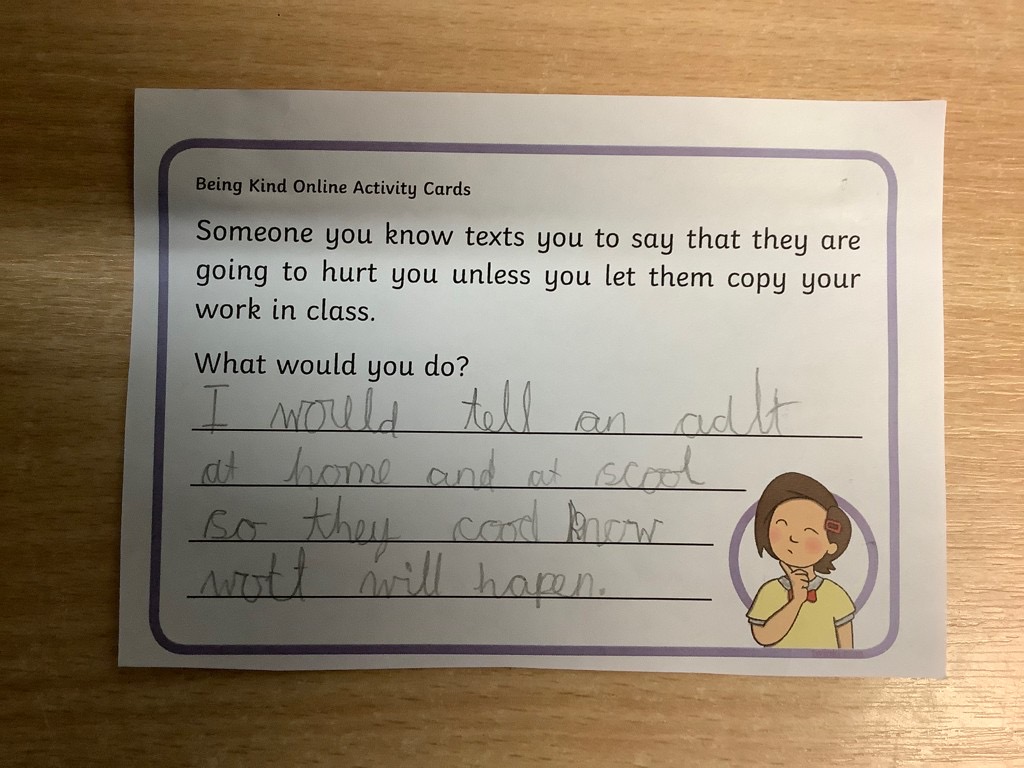 Being Kind Online Activity Cards
Someone you know texts you to say that they are
going to hurt you unless you let them copy your
work in class.
What would you do?
I would tell an adlt
at home and at scool
so they cood know
wott will hapen.